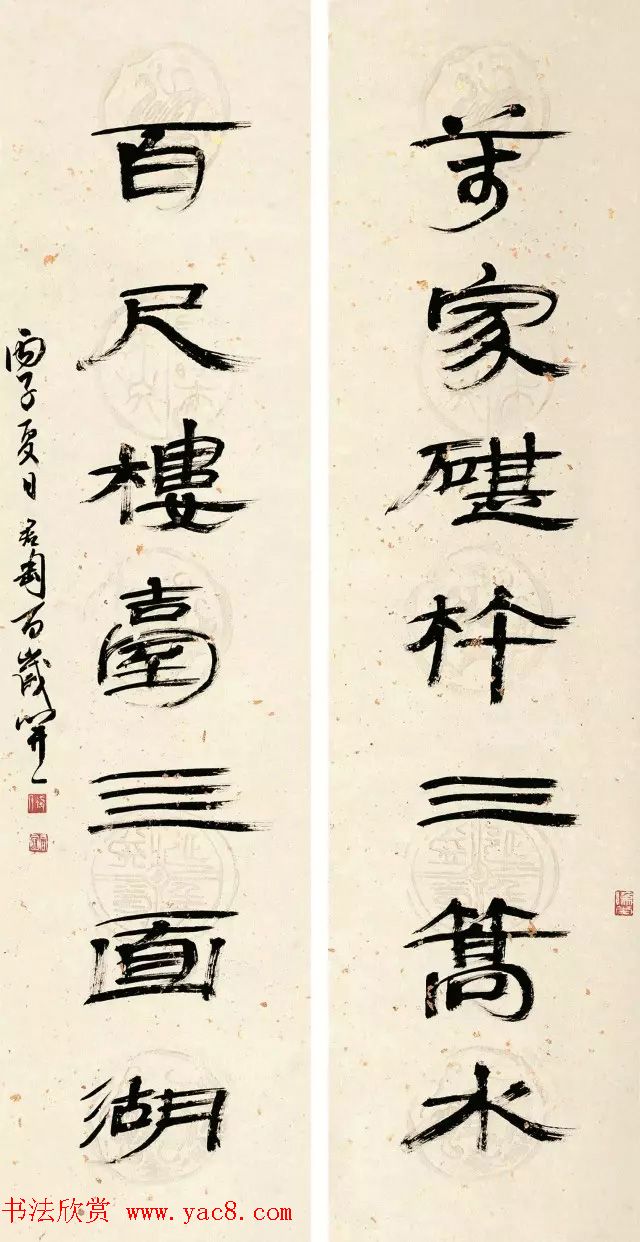 萬家碪杵三篙水
百尺樓臺亖面湖
丙子夏日君匋百歲開一
书法欣赏 www.yac8.com